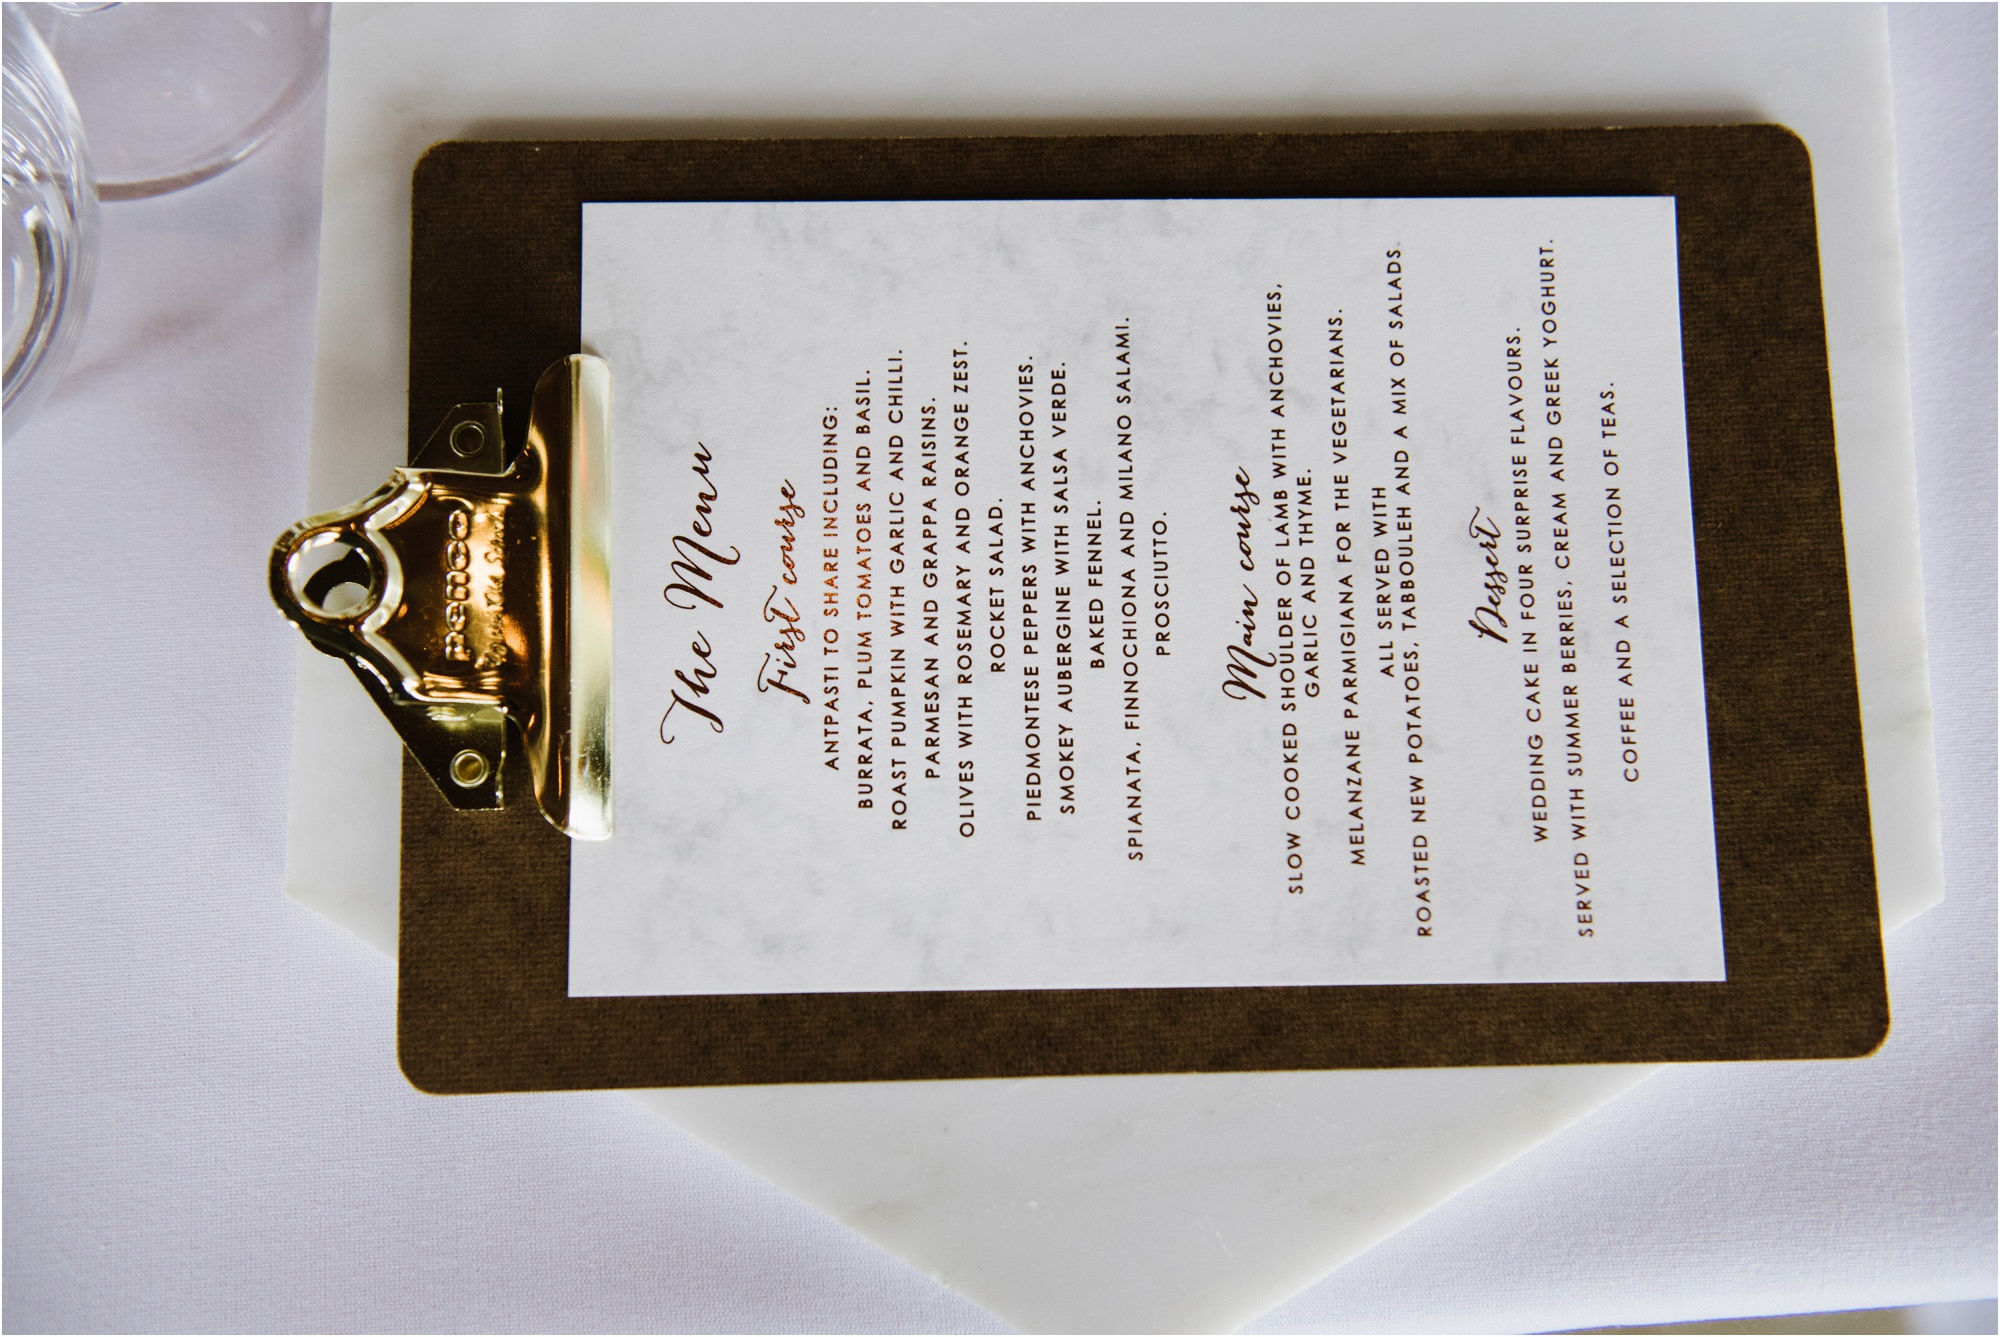 penco
The Menu
First course
ANTPASTI TO SHARE INCLUDING:
BURRATA, PLUM TOMATOES AND BASIL.
ROAST PUMPKIN WITH GARLIC AND CHILLI.
PARMESAN AND GRAPPA RAISINS.
OLIVES WITH ROSEMARY AND ORANGE ZEST.
ROCKET SALAD.
PIEDMONTESE PEPPERS WITH ANCHOVIES.
SMOKEY AUBERGINE WITH SALSA VERDE.
BAKED FENNEL.
SPIANATA, FINNOCHIONA AND MILANO SALAMI.
PROSCIUTTO.
Main course
SLOW COOKED SHOULDER OF LAMB WITH ANCHOVIES,
GARLIC AND THYME.
MELANZANE PARMIGIANA FOR THE VEGETARIANS.
ALL SERVED WITH
ROASTED NEW POTATOES, TABBOULEH AND A MIX OF SALADS.
Dessert
WEDDING CAKE IN FOUR SURPRISE FLAVOURS.
SERVED WITH SUMMER BERRIES, CREAM AND GREEK YOGHURT.
COFFEE AND A SELECTION OF TEAS.